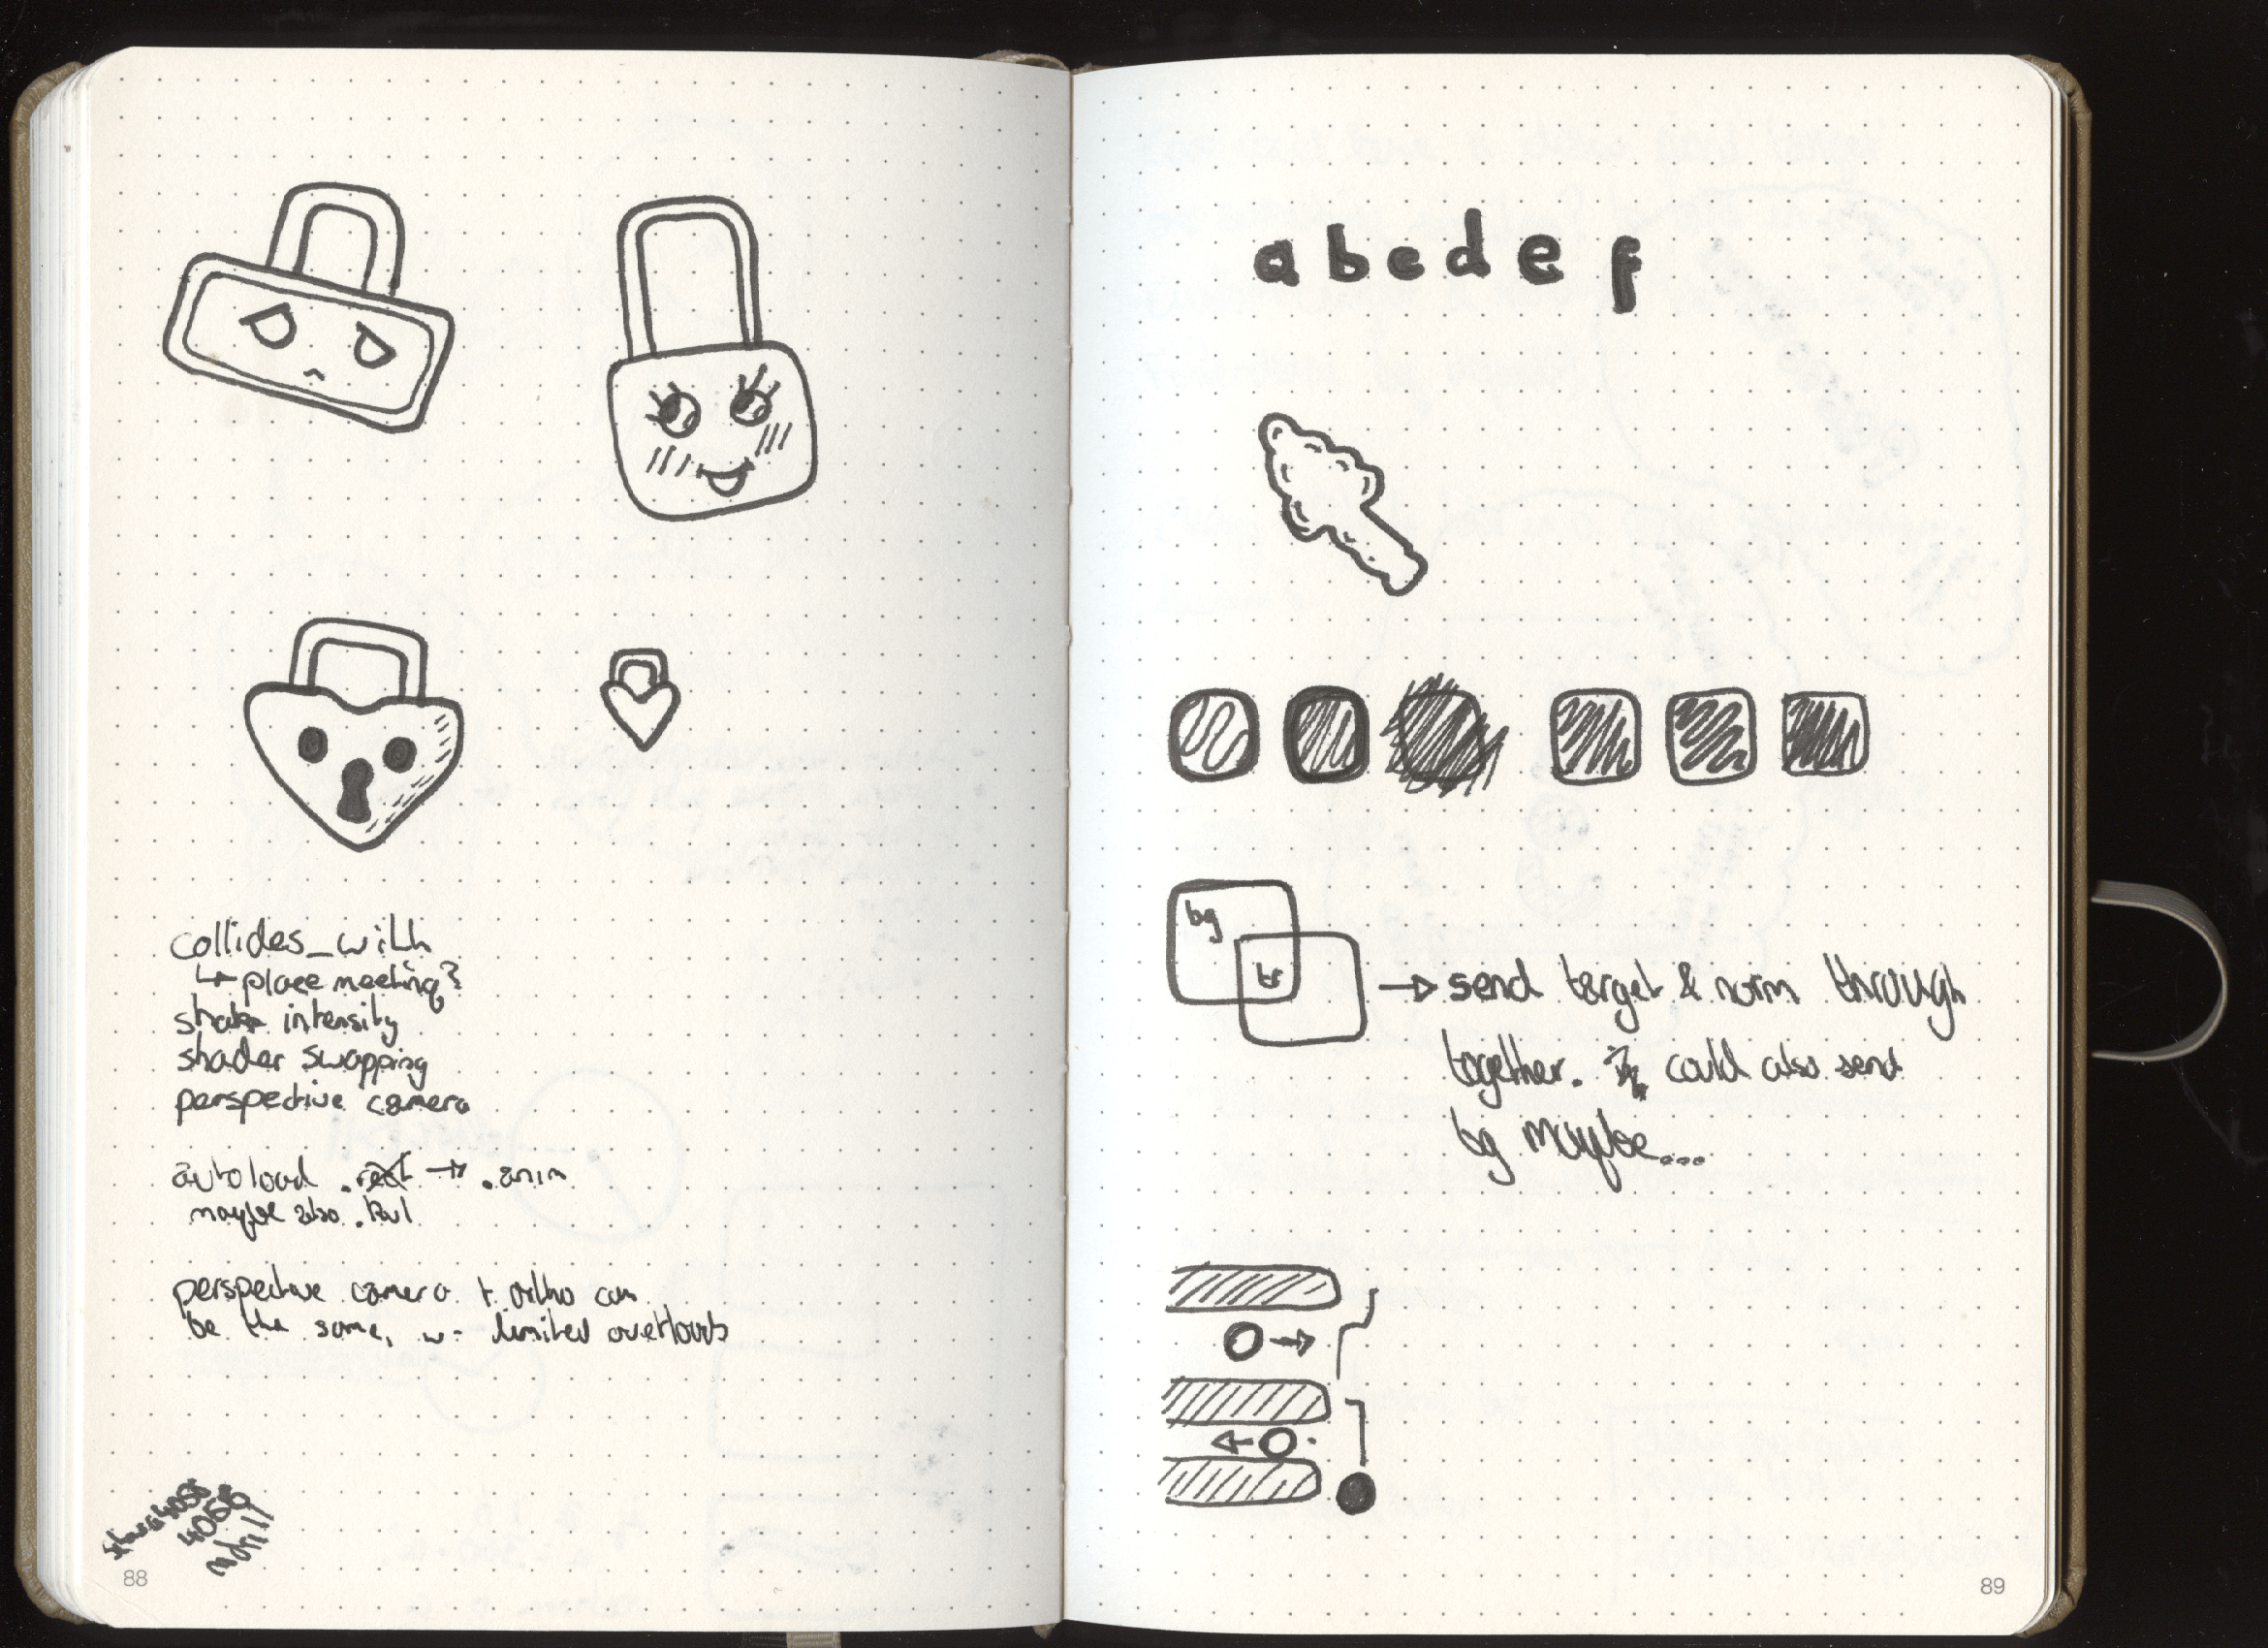 collides_with
↳ place meeting?
shake intensity
shader swapping
perspective camera
autoload .rect → .anim
maybe also .
perspective camera + ortho can
be the same, w- limited overloads
4056
88
a b c d e f
bg
→ send target & norm through
together. could also send
bg maybe...
89